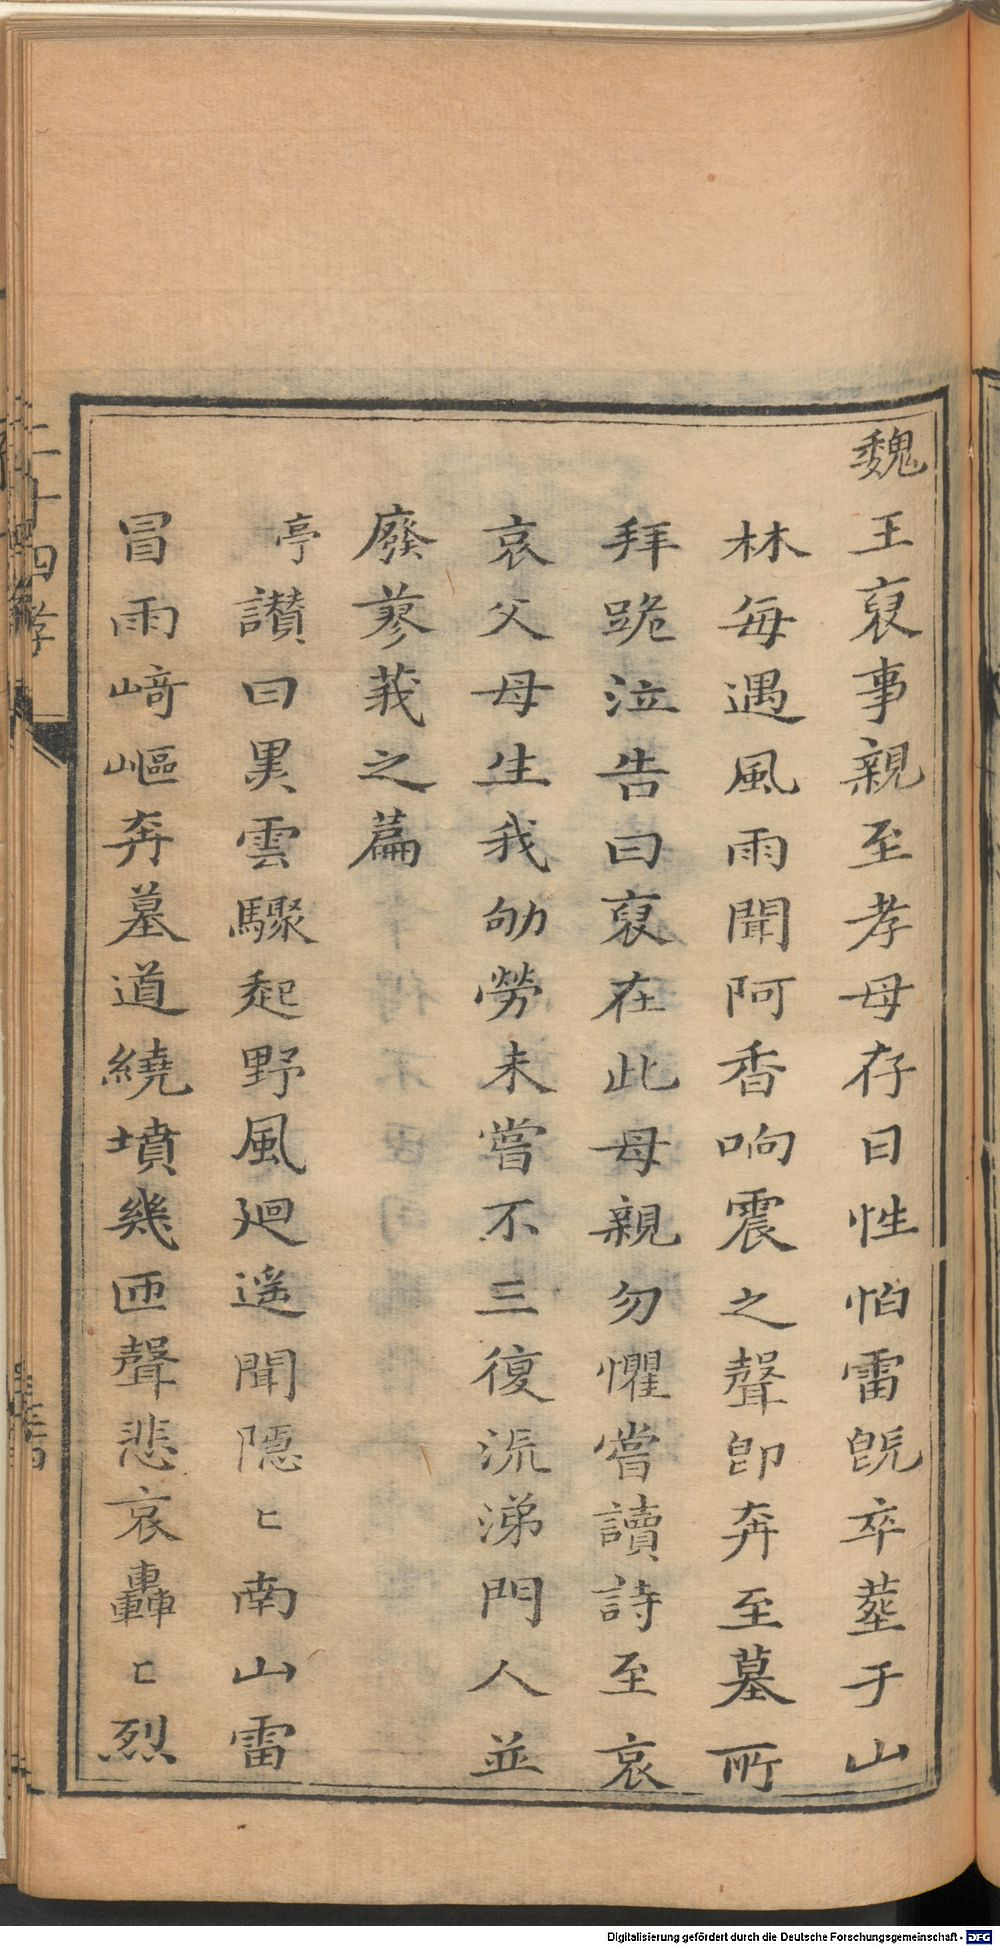 魏王裒事親至孝母存日性怕雷旣卒塟于山
林每遇風雨聞阿香响震之聲卽奔至墓所
拜跪泣告曰裒在此母親勿懼嘗讀詩至哀
哀父母生我劬勞未嘗不三復流涕門人並
廢蓼莪之篇
亭讃曰黒雲驟起野風廻遥聞隱〻南山雷
冒雨﨑嶇奔墓道繞墳幾匝聲悲哀轟〻烈
二十四孝
Digitalisierung gefördert durch die Deutsche Forschungsgemeinschaft - DFG